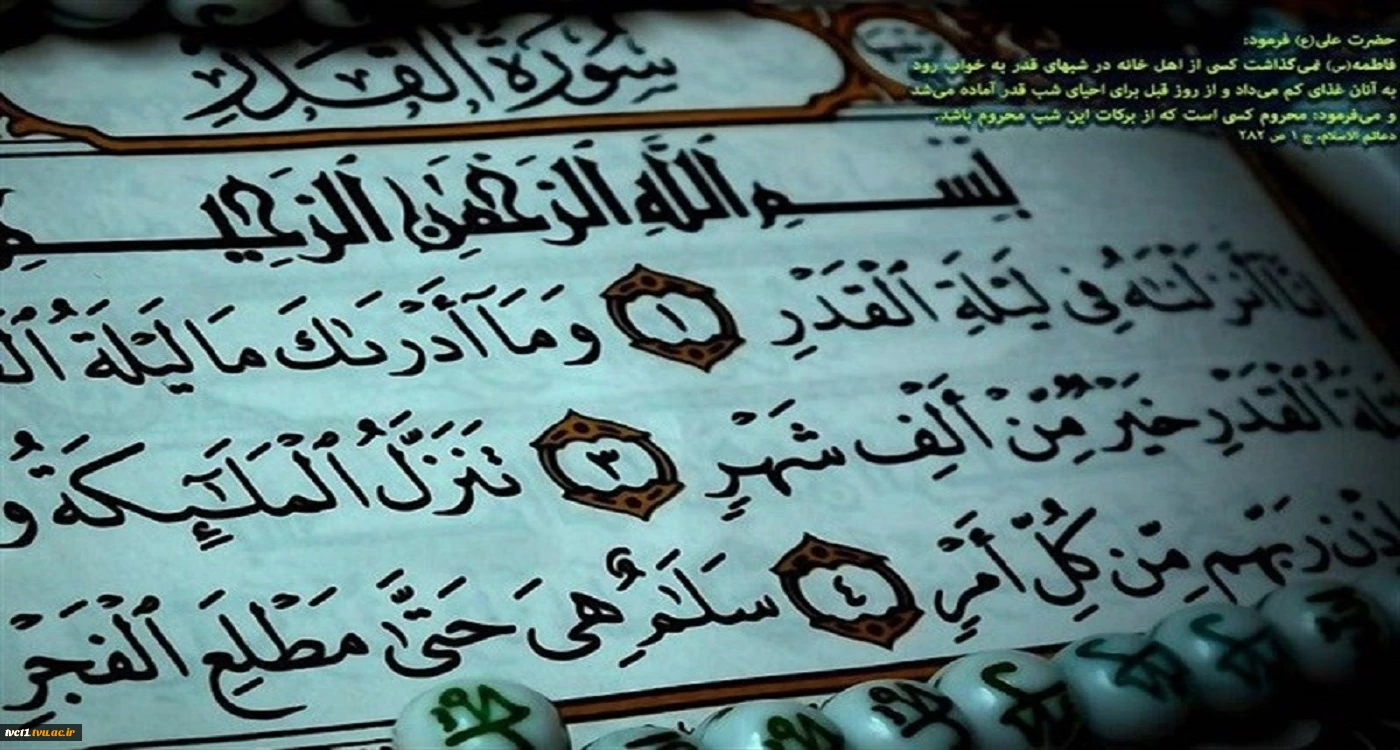 سُورَةُ القَدْرِ
حضرت علی(ع) فرمود:
فاطمه(س) نمی‌گذاشت کسی از اهل خانه در شبهای قدر به خواب رود
به آنان غذای کم می‌داد و از روز قبل برای احیای شب قدر آماده می‌شد
و می‌فرمود: محروم کسی است که از برکات این شب محروم باشد.
دعائم الاسلام، ج ۱ ص ۲۸۲
بِسْمِ ٱللَّهِ ٱلرَّحْمَٰنِ ٱلرَّحِيمِ
إِنَّآ أَنزَلْنَٰهُ فِى لَيْلَةِ ٱلْقَدْرِ ١ وَمَآ أَدْرَىٰكَ مَا لَيْلَةُ
ٱلْقَدْرِ خَيْرٌ مِّنْ أَلْفِ شَهْرٍ ٣ تَنَزَّلُ ٱلْمَلَٰٓئِكَةُ وَ
رَبِّهِم مِّن كُلِّ أَمْرٍ ٤ سَلَٰمٌ هِىَ حَتَّىٰ مَطْلَعِ ٱلْفَجْرِ
tvct1.tvu.ac.ir